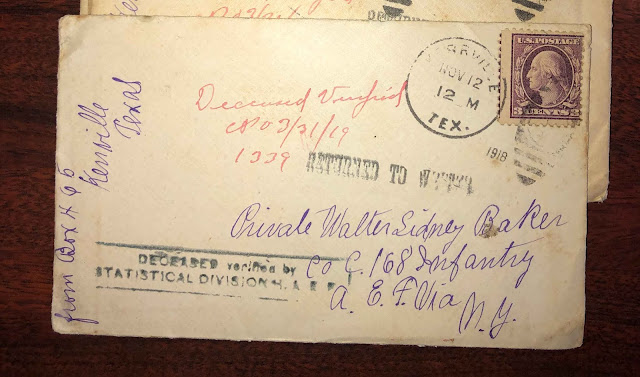 from Box 465
Kerrville
Texas
Deceased Verified
CPO 3/31/19
1339
RETURNED TO WRITER
KERRVILLE
NOV 12
12 M
TEX.
1918
U.S. POSTAGE
3 CENTS 3
Private Walter Sidney Baker
Co G. 168 Infantry
A. E. F. Via
N. Y.
DECEASED verified by
STATISTICAL DIVISION H. A. E. F.